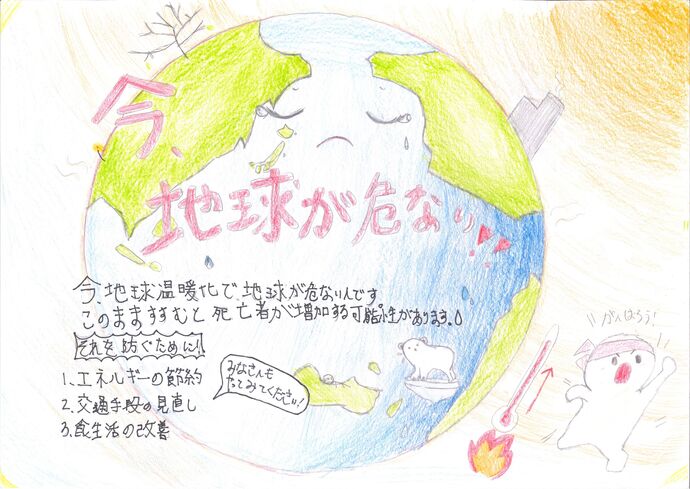 今、
地球が危ない!!
今、地球温暖化で、地球が危ないんです。
このまますすむと死亡者が増加する可能性があります。
それを防ぐために!!
1.エネルギーの節約
2.交通手段の見直し
3.食生活の改善
みなさんも
やってみてください!
がんばろう!